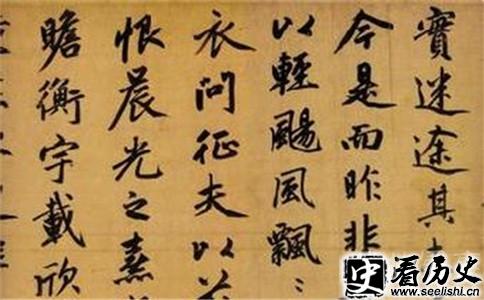 實迷途其
今是而昨非
以輕颺風飄〻
衣問征夫以
恨晨光之熹
瞻衡宇載欣
史 看历史
www.seelishi.cn